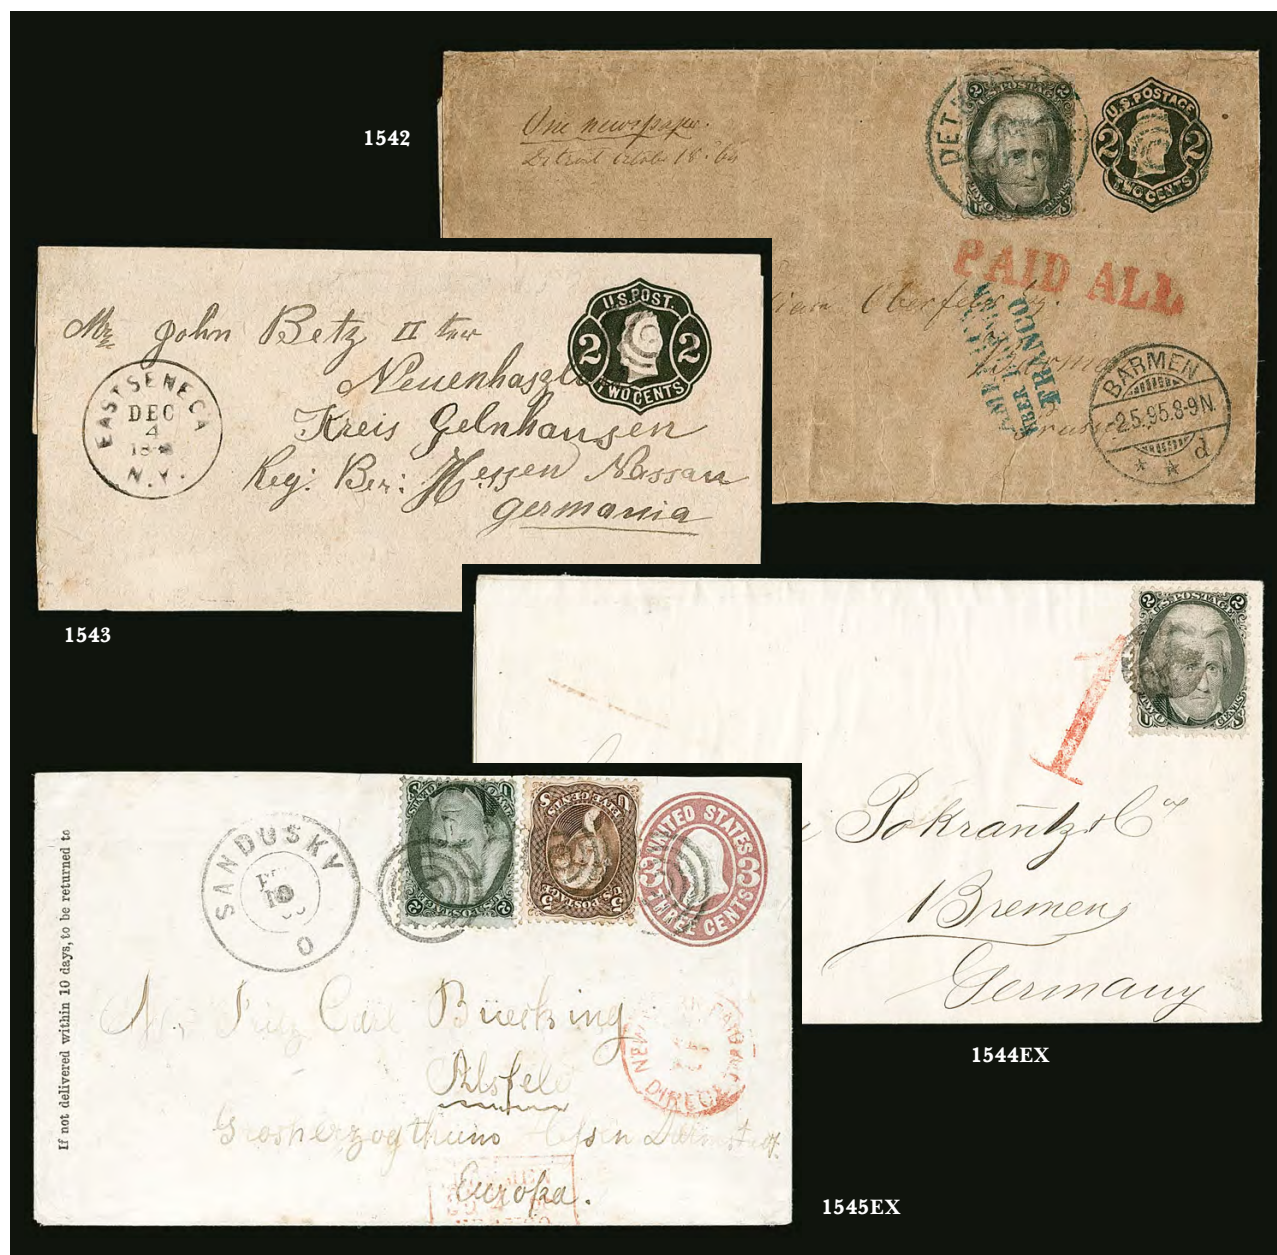 1542
One newspaper.
Detroit
DET
2 2
U.S. POSTAGE
2 2
TWO CENTS
PAID ALL
Oberfel
FRANCO
BARMEN
2.5.95.8-9N.
* * d
Mr John Betz II ter
U.S. POST.
2 2
TWO CENTS
Neuenhaszl
Kreis Gelnhausen
Reg: Bez: Hessen Nassau
Germania
EAST SENECA
DEC
4
N.Y.
1543
2 2
U.S. POSTAGE
1
Pokrantz & Co
Bremen
Germany
1544EX
If not delivered within 10 days, to be returned to
SANDUSKY
10
O
U.S. POSTAGE
5 5
FIVE CENTS
UNITED STATES
3 3
THREE CENTS
Mr Fritz Carl Buecking
Alsfeld
Grosherzogthum Hessen Darmstadt
Europa.
NEW
DIRECT
1545EX